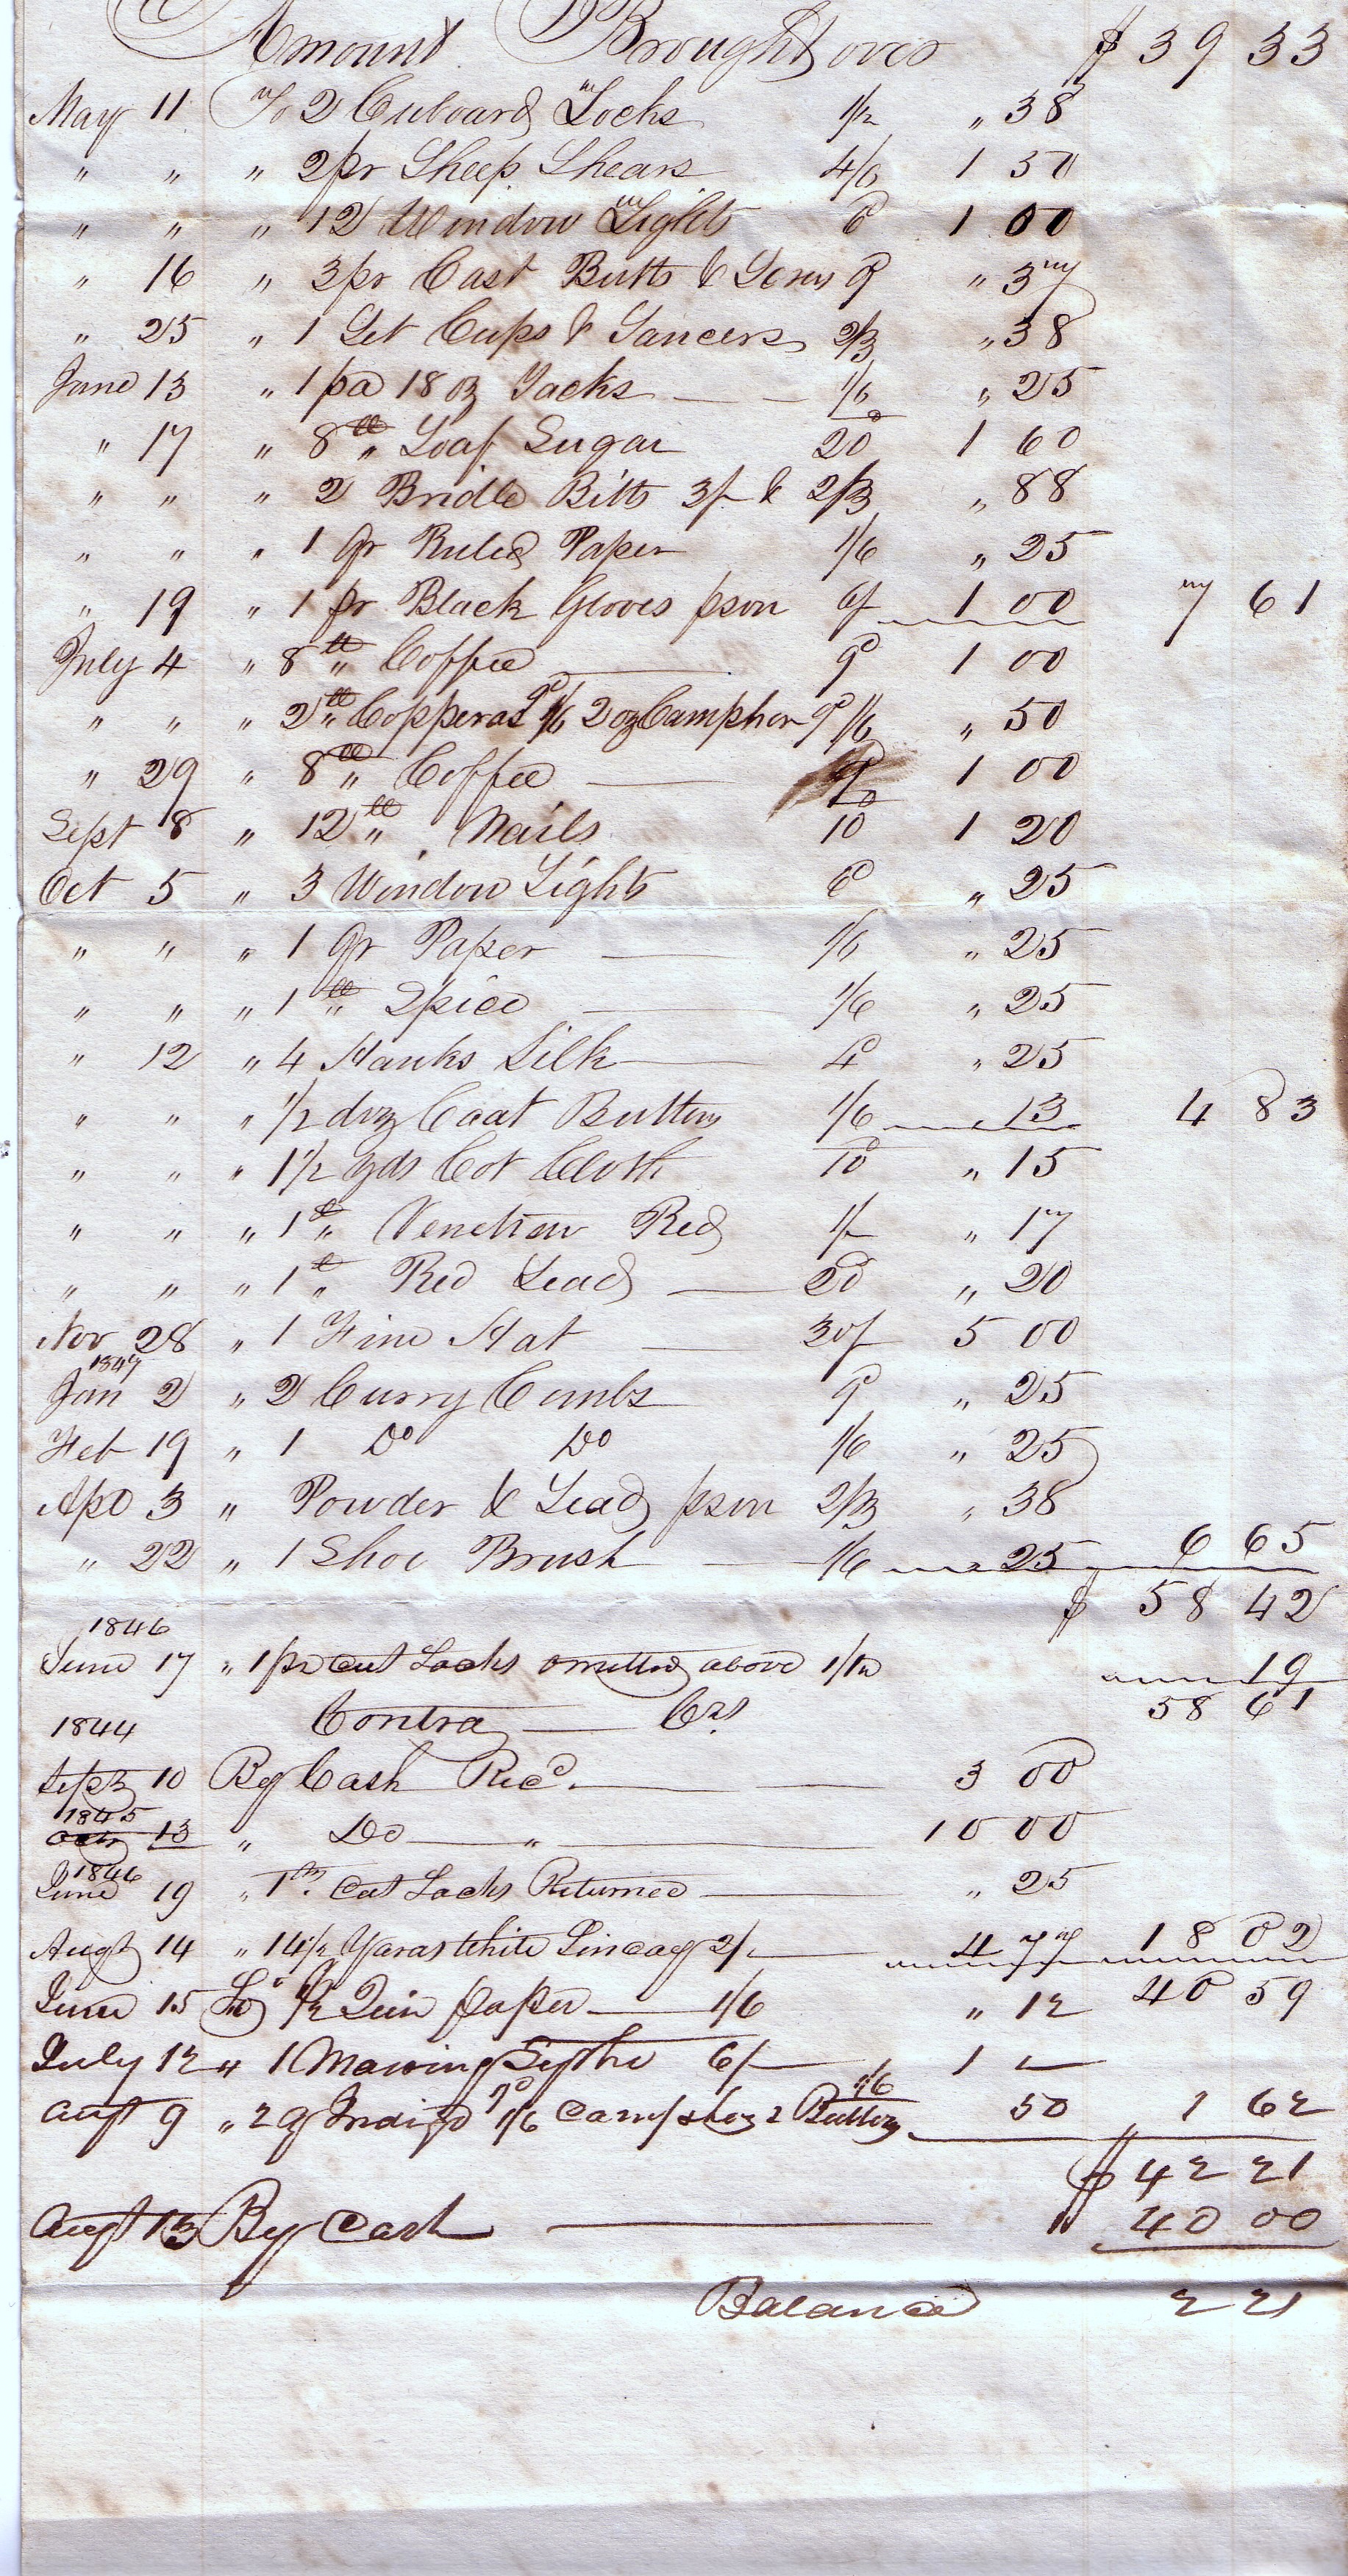 Amount Brought over $ 39 33
May 11 To 2 Cuboard Locks 1/2 " 38
" " " 2 pr Sheep Shears 4/6 1 50
" " " 12 Window Lights 6d 1 00
" 16 " 3 pr Cast Butts & Screws 9 " 37
" 25 " 1 Set Cups & Saucers 2/3 " 38
June 13 " 1 pa 18 oz Tacks 1/6 " 25
" 17 " 8 lb " Loaf Sugar 20 1 60
" " " 2 Bridle Bitts 3/- & 2/3 " 88
" " " 1 qr Ruled Paper 1/6 " 25
" 19 " 1 pr Black Gloves pson 6/- 1 00 7 61
July 4 " 8 lb " Coffee 9d 1 00
" " " 2 lb " Copperas 9d 1/6 2 oz Camphor 9d 1/6 " 50
" 29 " 8 lb " Coffee 9d 1 00
Sept 8 " 12 lb " Nails 10 1 20
Oct 5 " 3 Window Lights 6d " 25
" " " 1 qr Paper 1/6 " 25
" " " 1 lb " Spice 1/6 " 25
" 12 " 4 Hanks Silk 4d " 25
" " " 1/2 doz Coat Buttons 1/6 13 4 83
" " " 1 1/2 yds Cot Cloth 10d " 15
" " " 1 lb " Venetian Red 1/- " 17
" " " 1 lb " Red Lead 20 " 20
Nov 28 " 1 Fine Hat 30/- 5 00
1847
Jan 2 " 2 Curry Combs 9d " 25
Feb 19 " 1 Do Do 1/6 " 25
Apl 3 " Powder & Lead pson 2/3 " 38
" 22 " 1 Shoe Brush 1/6 25 6 65
$ 58 42
1846
June 17 " 1 pr Cut Locks omitted above 1/1 19
Contra Crs 58 61
1844
Sept 10 By Cash Recd 3 00
1845
Octr 13 " Do " 10 00
1846
June 19 " Cut Locks Returned " 25
Augt 14 " 14 1/2 Yards White 2/- 4 77 18 02
June 15 To 1/2 Quir paper 1/6 " 12 40 59
July 12 " 1 Mawing Sythe 6/- 1 —
1/6
Augt 9 " 2 q Indigo 9d 1/6 Camphor 2 Buttons 50 1 62
$ 42 21
Augt 13 By Cash 40 00
Balance 2 21